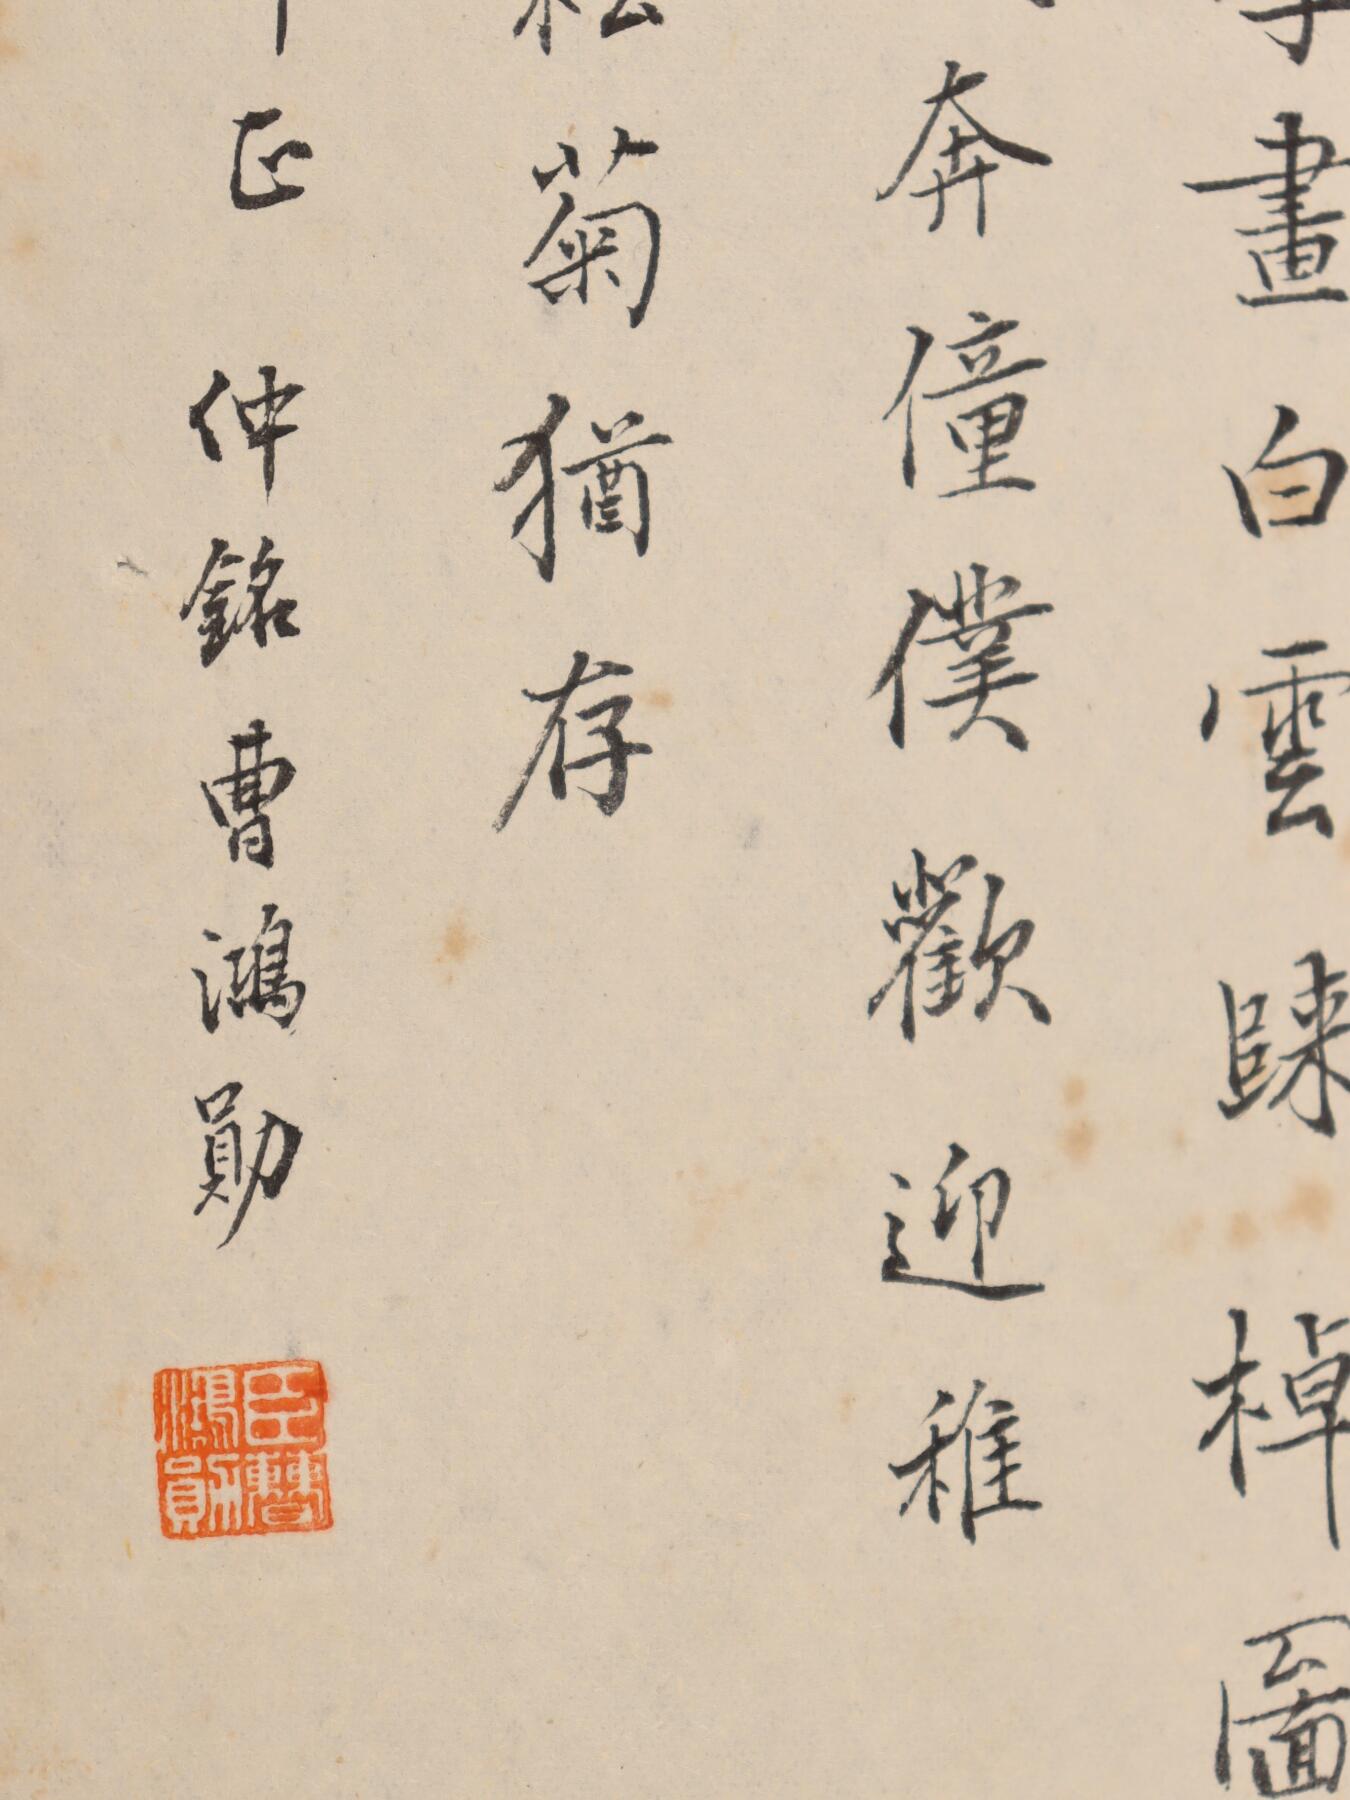 畫白雲歸棹圖
奔僮僕歡迎稚
松菊猶存
正 仲銘曹鴻勛
臣曹鴻勛